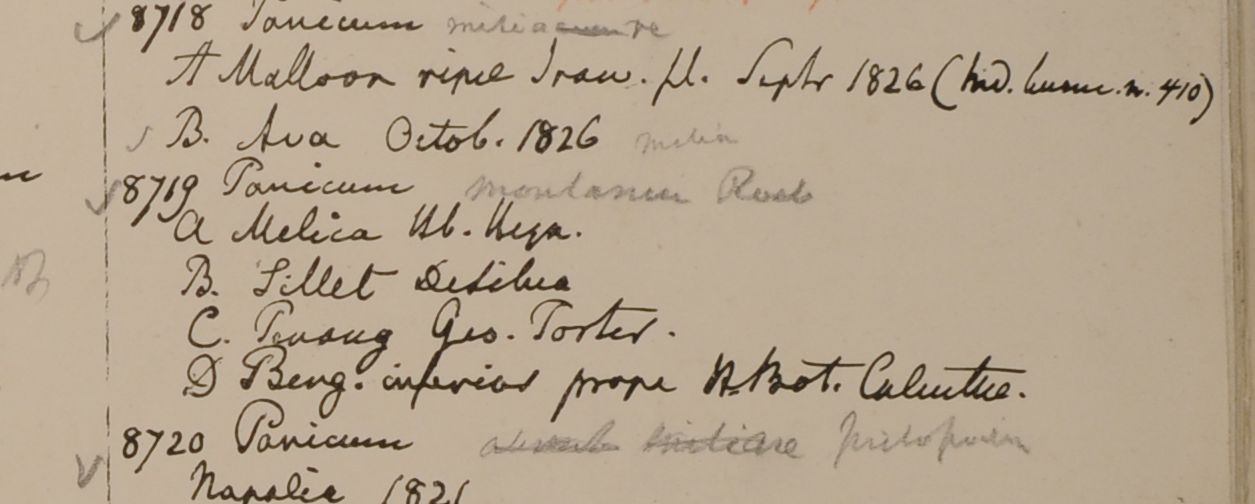 8718 Panicum miliaceum
A Malloon ripis Iraw. fl. Septr 1826 (hid. burm. n. 410)
B. Ava Octob. 1826
8719 Panicum montanum Roxb
a Melica Hb. Heyn.
B. Sillet Desilva
C. Penang Geo. Porter.
D Beng. inferior prope H. Bot. Calcuttae.
8720 Panicum
Napalia 1821